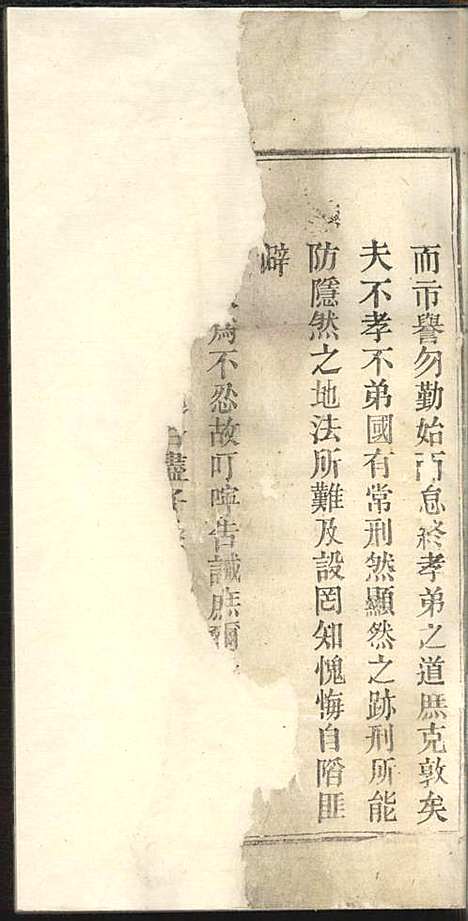 而市譽勿勤始而怠終孝弟之道庶克敦矣
夫不孝不弟國有常刑然顯然之跡刑所能
防隱然之地法所難及設罔知愧悔自陷匪
辟
爲不忍故叮嚀告誡庶爾
盡子